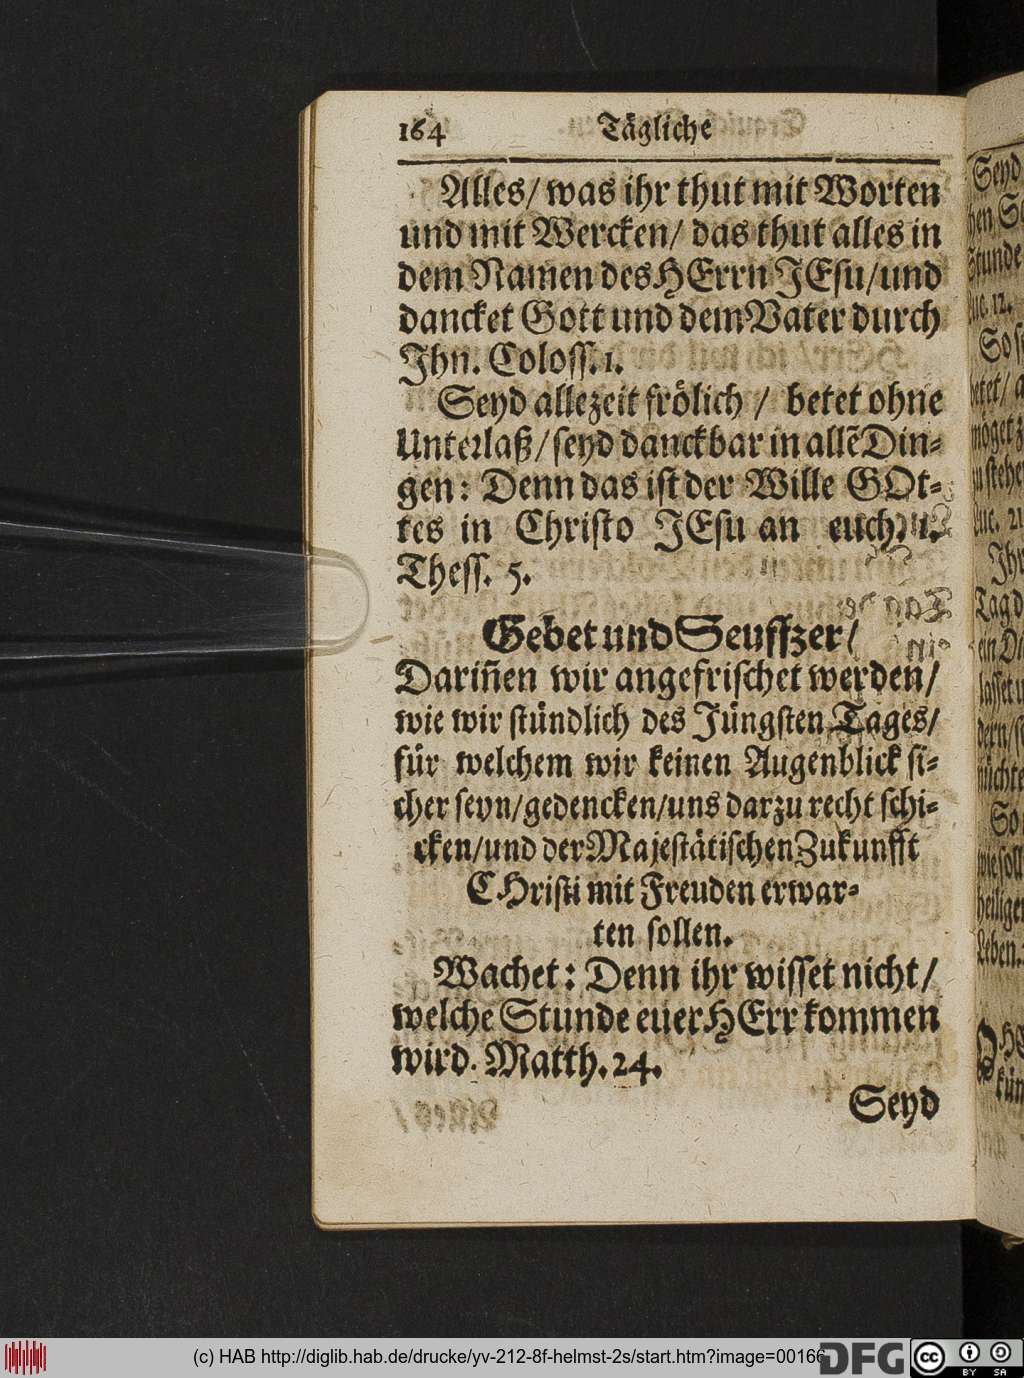 164 Tägliche
Alles/ was ihr thut mit Worten
und mit Wercken/ das thut alles in
dem Namen des HErrn JEsu/ und
dancket Gott und dem Vater durch
Jhn. Coloss. 1.
Seyd allezeit frölich / betet ohne
Unterlaß/ seyd danckbar in allẽ Din-
gen: Denn das ist der Wille GOt-
tes in Christo JEsu an euch. 1.
Thess. 5.
Gebet und Seuffzer/
Dariñen wir angefrischet werden/
wie wir stündlich des Jüngsten Tages/
für welchem wir keinen Augenblick si-
cher seyn/ gedencken/ uns darzu recht schi-
cken/ und der Majestätischen Zukunfft
CHristi mit Freuden erwar-
ten sollen.
Wachet: Denn ihr wisset nicht/
welche Stunde euer HErr kommen
wird. Matth. 24.
Seyd
Seyd
hen
Stunde
Luc. 12.
So
betet/
möget
stehe
Luc. 21
Jhr
Tag
ein
lasset
dern/
nüchte
So
wie soll
heilige
Leben.
(c) HAB http://diglib.hab.de/drucke/yv-212-8f-helmst-2s/start.htm?image=00166
DFG
cc
BY SA